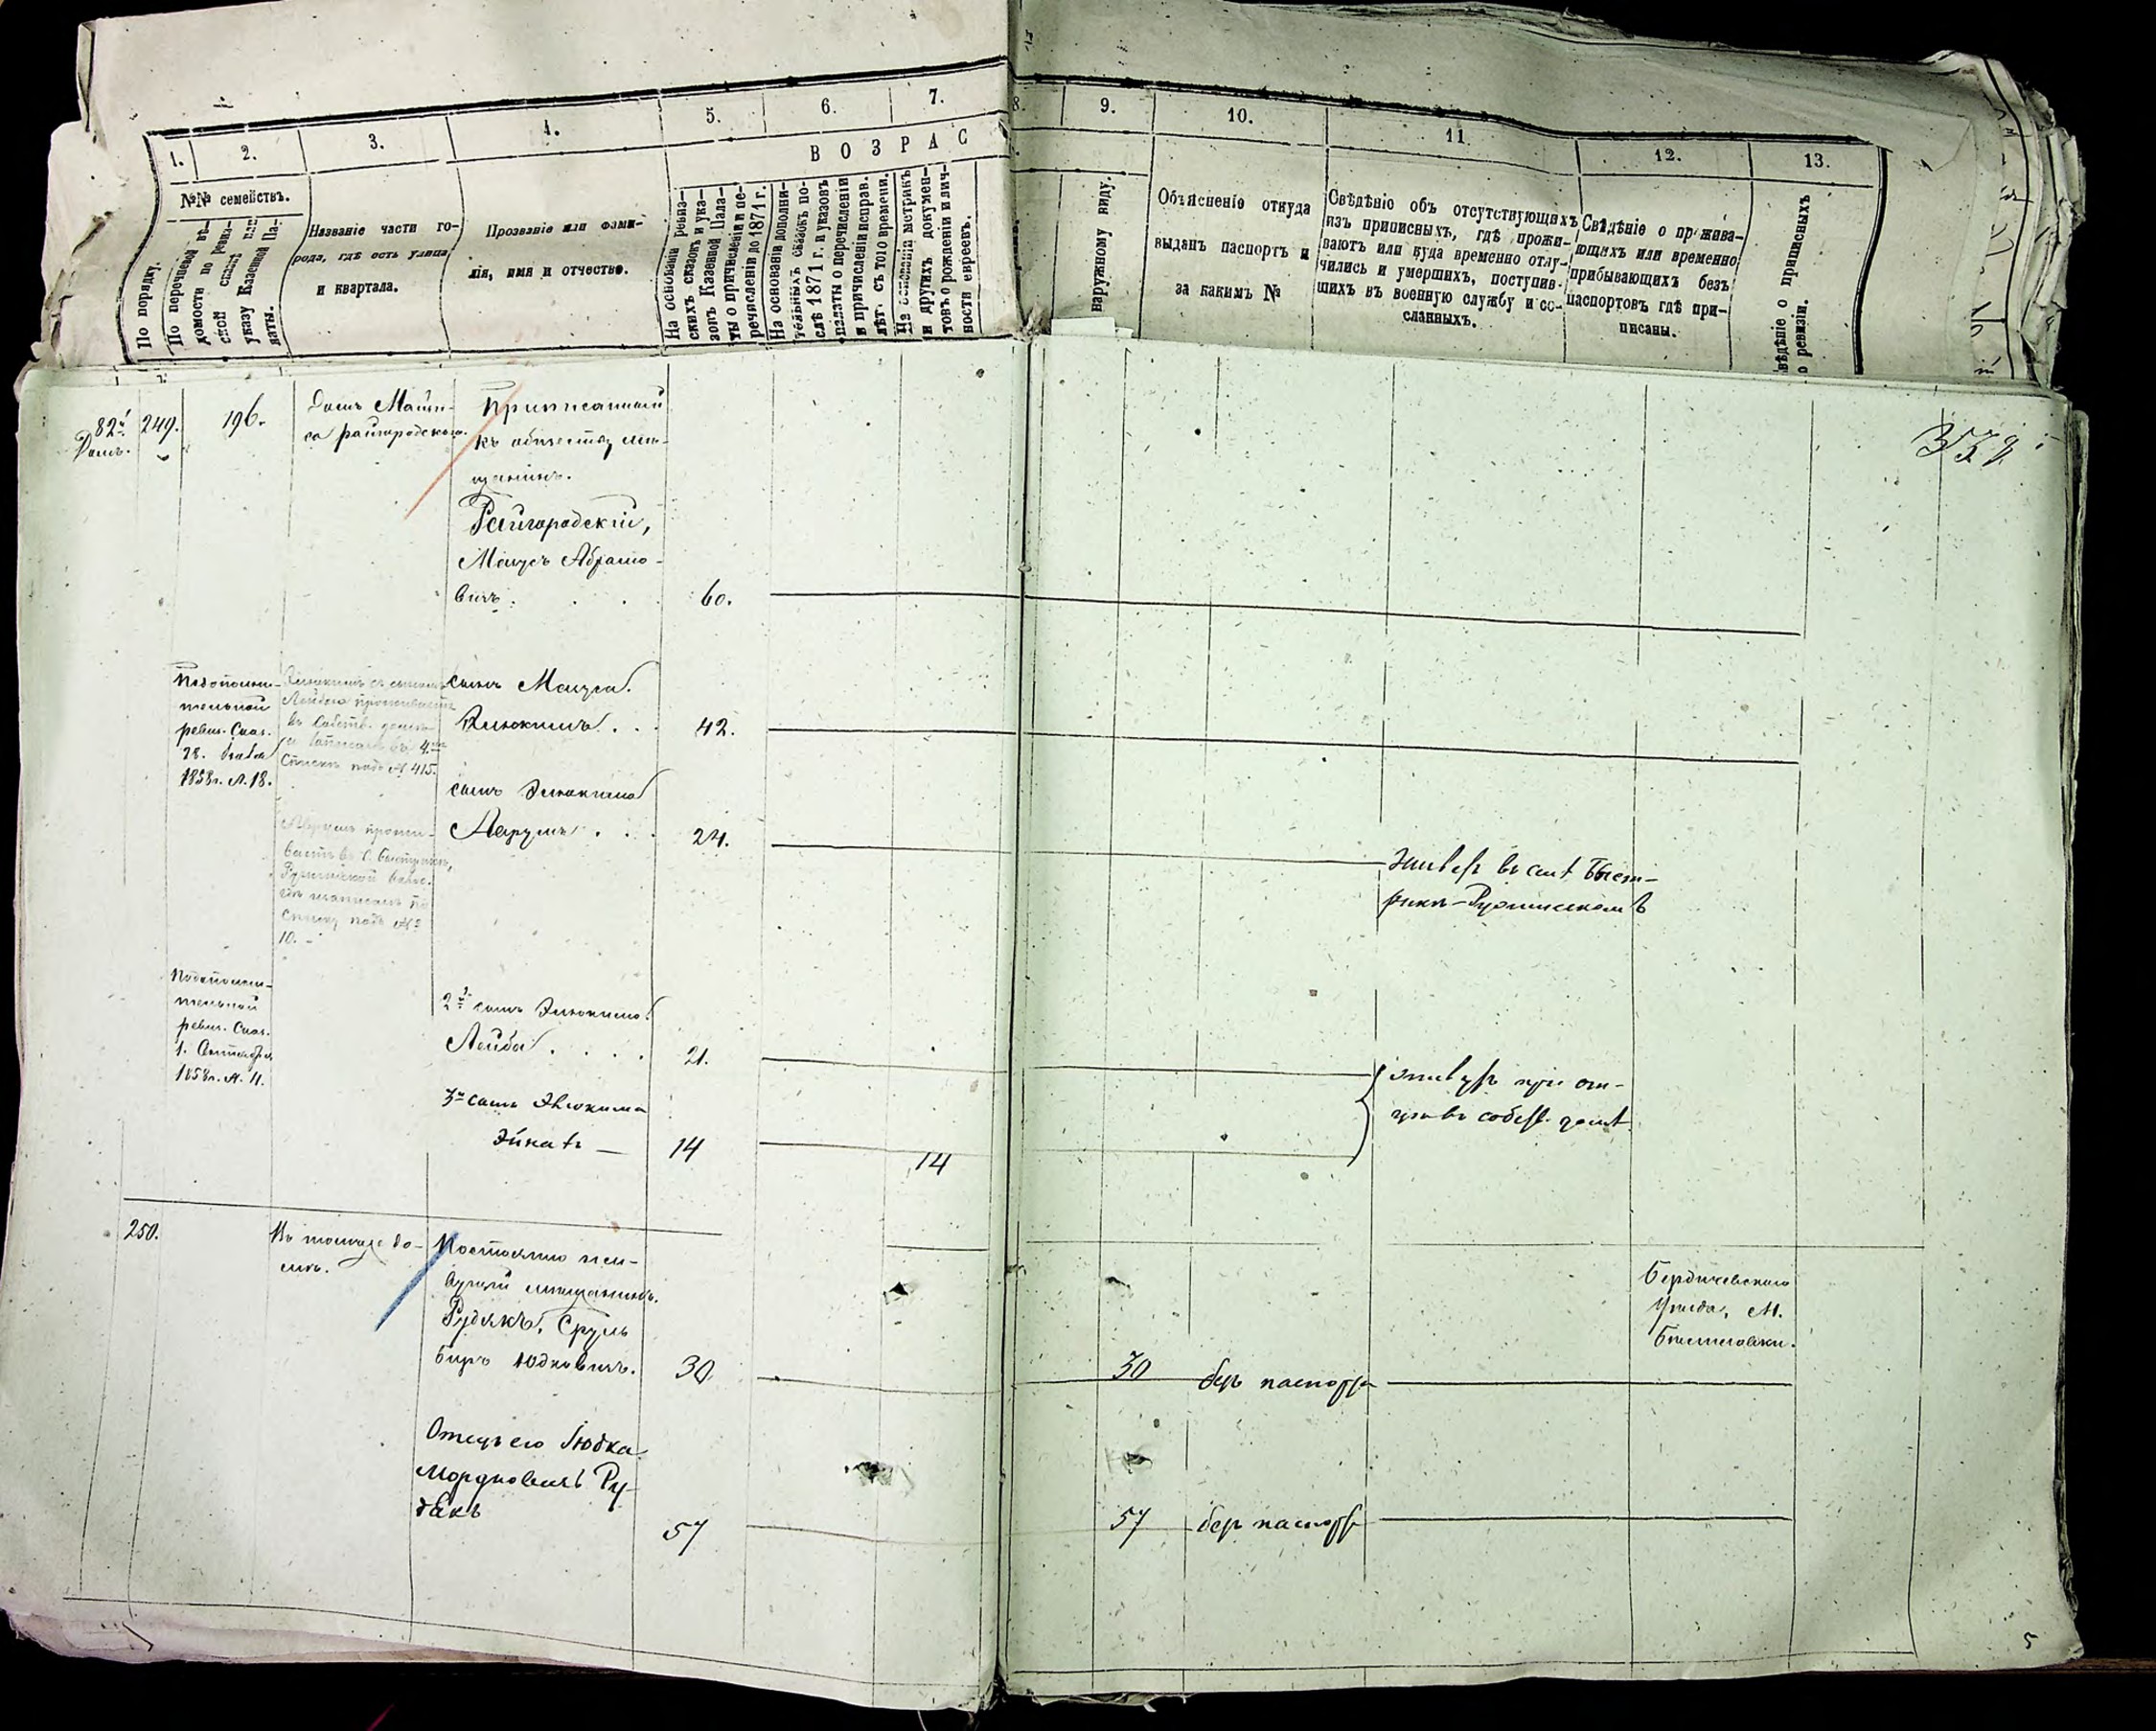 1.
2.
3.
4.
5.
6.
7.
В О З Р А С
№№ семействъ.
По порядку.
По перечневой вѣ-
домости по ревиз-
ской сказкѣ или
указу Казенной Па-
латы.
Названіе части го-
рода, гдѣ есть улица
и квартала.
Прозваніе или фами-
лія, имя и отчество.
На основаніи ревиз-
скихъ сказокъ и ука-
зовъ Казенной Пала-
ты о причисленіи и пе-
речисленіи до 1871 г.
На основаніи дополни-
тельныхъ сказокъ по-
слѣ 1871 г. и указовъ
палаты о перечисленіи
и причисленіи исправ.
лѣт. съ того времени.
На основаніи метрикъ
и другихъ докумен-
товъ о рожденіи и лич-
ности евреевъ.
8.
9.
10.
11.
12.
13.
наружному виду.
Объясненіе откуда
выданъ паспортъ и
за какимъ №
Свѣдѣніе объ отсутствующихъ
изъ приписныхъ, гдѣ прожи-
ваютъ или куда временно отлу-
чились и умершихъ, поступив-
шихъ въ военную службу и со-
сланныхъ.
Свѣдѣніе о прожива-
ющихъ или временно
прибывающихъ безъ
паспортовъ гдѣ при-
писаны.
вѣдѣніе о приписныхъ
о ревизіи.
82й
Домъ.
249.
196.
Домъ Майи-
са Райгородскаго.
Приписанный
къ обществу мѣ-
щанинъ.
Райгородскій,
Маусъ Абрамо-
вичъ.
60.
По дополни-
тельной
ревиз. Сказ.
1858г. №. 18.
Элюкимъ съ сыномъ
Лейбою проживаетъ
въ Собств. домѣ
и записанъ въ 4мъ
Спискѣ подъ № 415.
сынъ Мауса
Элюкимъ . .
42.
сынъ Элюкима
Аврумъ . . .
24.
Аврумъ прожи-
ваетъ въ С. Быстрикѣ,
Ружинской волос.
гдѣ и записанъ по
Списку подъ №
10. -
Живетъ въ селѣ Быст-
рикѣ-Ружинскомъ
По дополни-
тельной
ревиз. Сказ.
1. Октября
1858г. №. 11.
2й сынъ Элюкима
Лейба . . . .
21.
3й сынъ Элюкима
14
14
живутъ при от-
цѣ въ собств. домѣ.
250.
Въ томъ же до-
мѣ.
Постоянно жи-
вущій мѣщанинъ.
Рудякъ, Сруль
Беръ Юдковичъ.
30
30
безъ паспорта
Бердичевскаго
Уѣзда, М.
Отецъ его Юдка
Мордковичъ Ру-
дякъ
57
57
безъ паспорта
5